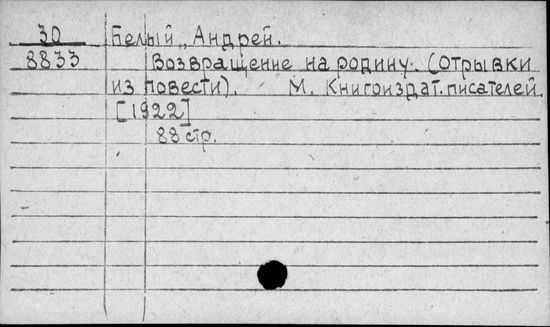 30 Белый, Андрей.
8833 Возвращение на родину. (Отрывки
из повести). М. Книгоиздат. писателей.
[1922]
88 стр.